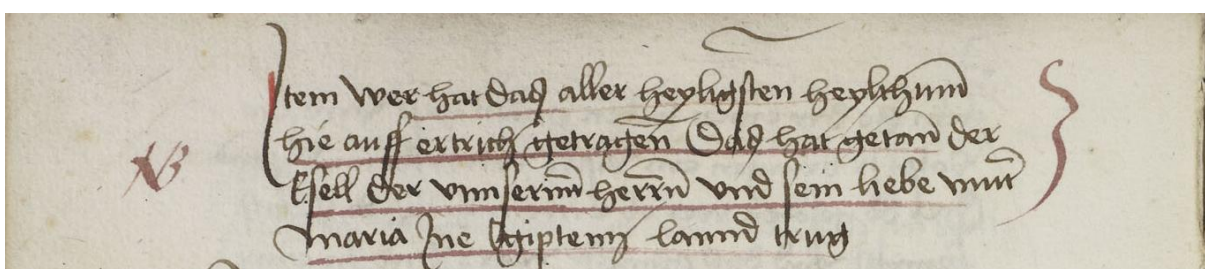 Item wer hat das aller heyligsten heylthum̄
hie auff ertrich getragen̄ Das hat getan̄ der
Esell der vnnserm̄ herrn̄ vnd sein liebe mut̄
maria Jne Egiptenn lannd trug